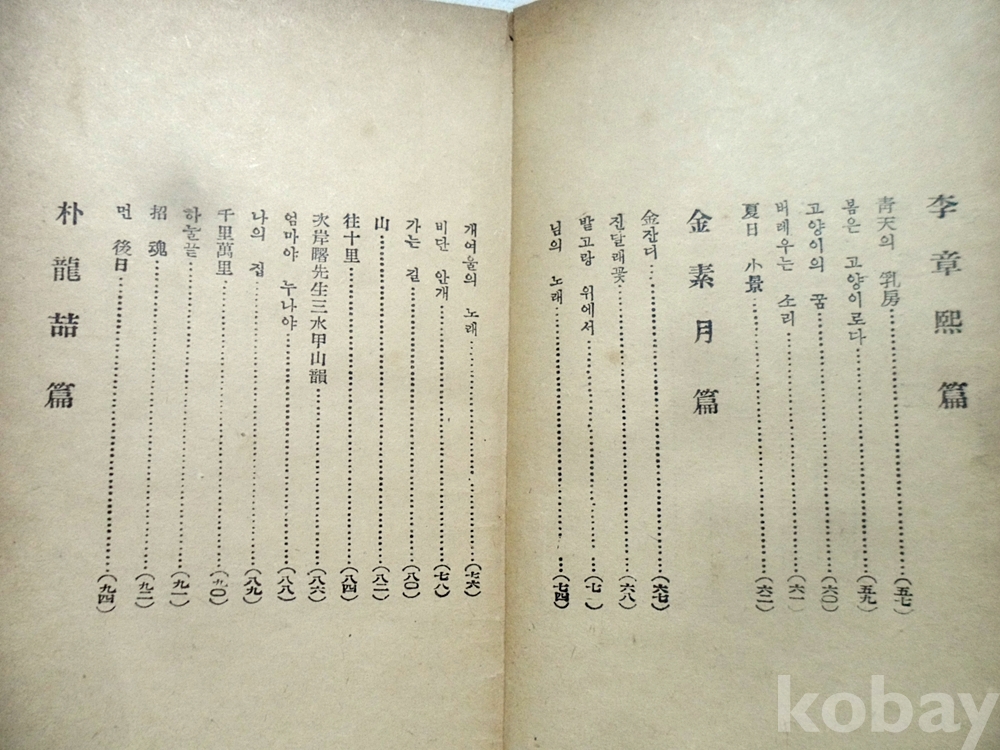 李章熙篇
靑天의 乳房……(五七)
봄은 고양이로다……(五九)
고양이의 꿈……(六〇)
버레우는 소리……(六一)
夏日 小景……(六二)
金素月篇
金잔디……(六七)
진달래꽃……(六八)
밭고랑 위에서……(七一)
님의 노래……(七四)
개여울의 노래……(七六)
비단 안개……(七八)
가는 길……(八〇)
山……(八二)
往十里……(八四)
次岸曙先生三水甲山韻……(八六)
엄마야 누나야……(八八)
나의 집……(八九)
千里萬里……(九〇)
하눌끝……(九一)
招魂……(九二)
먼 後日……(九四)
朴龍喆篇
kobay